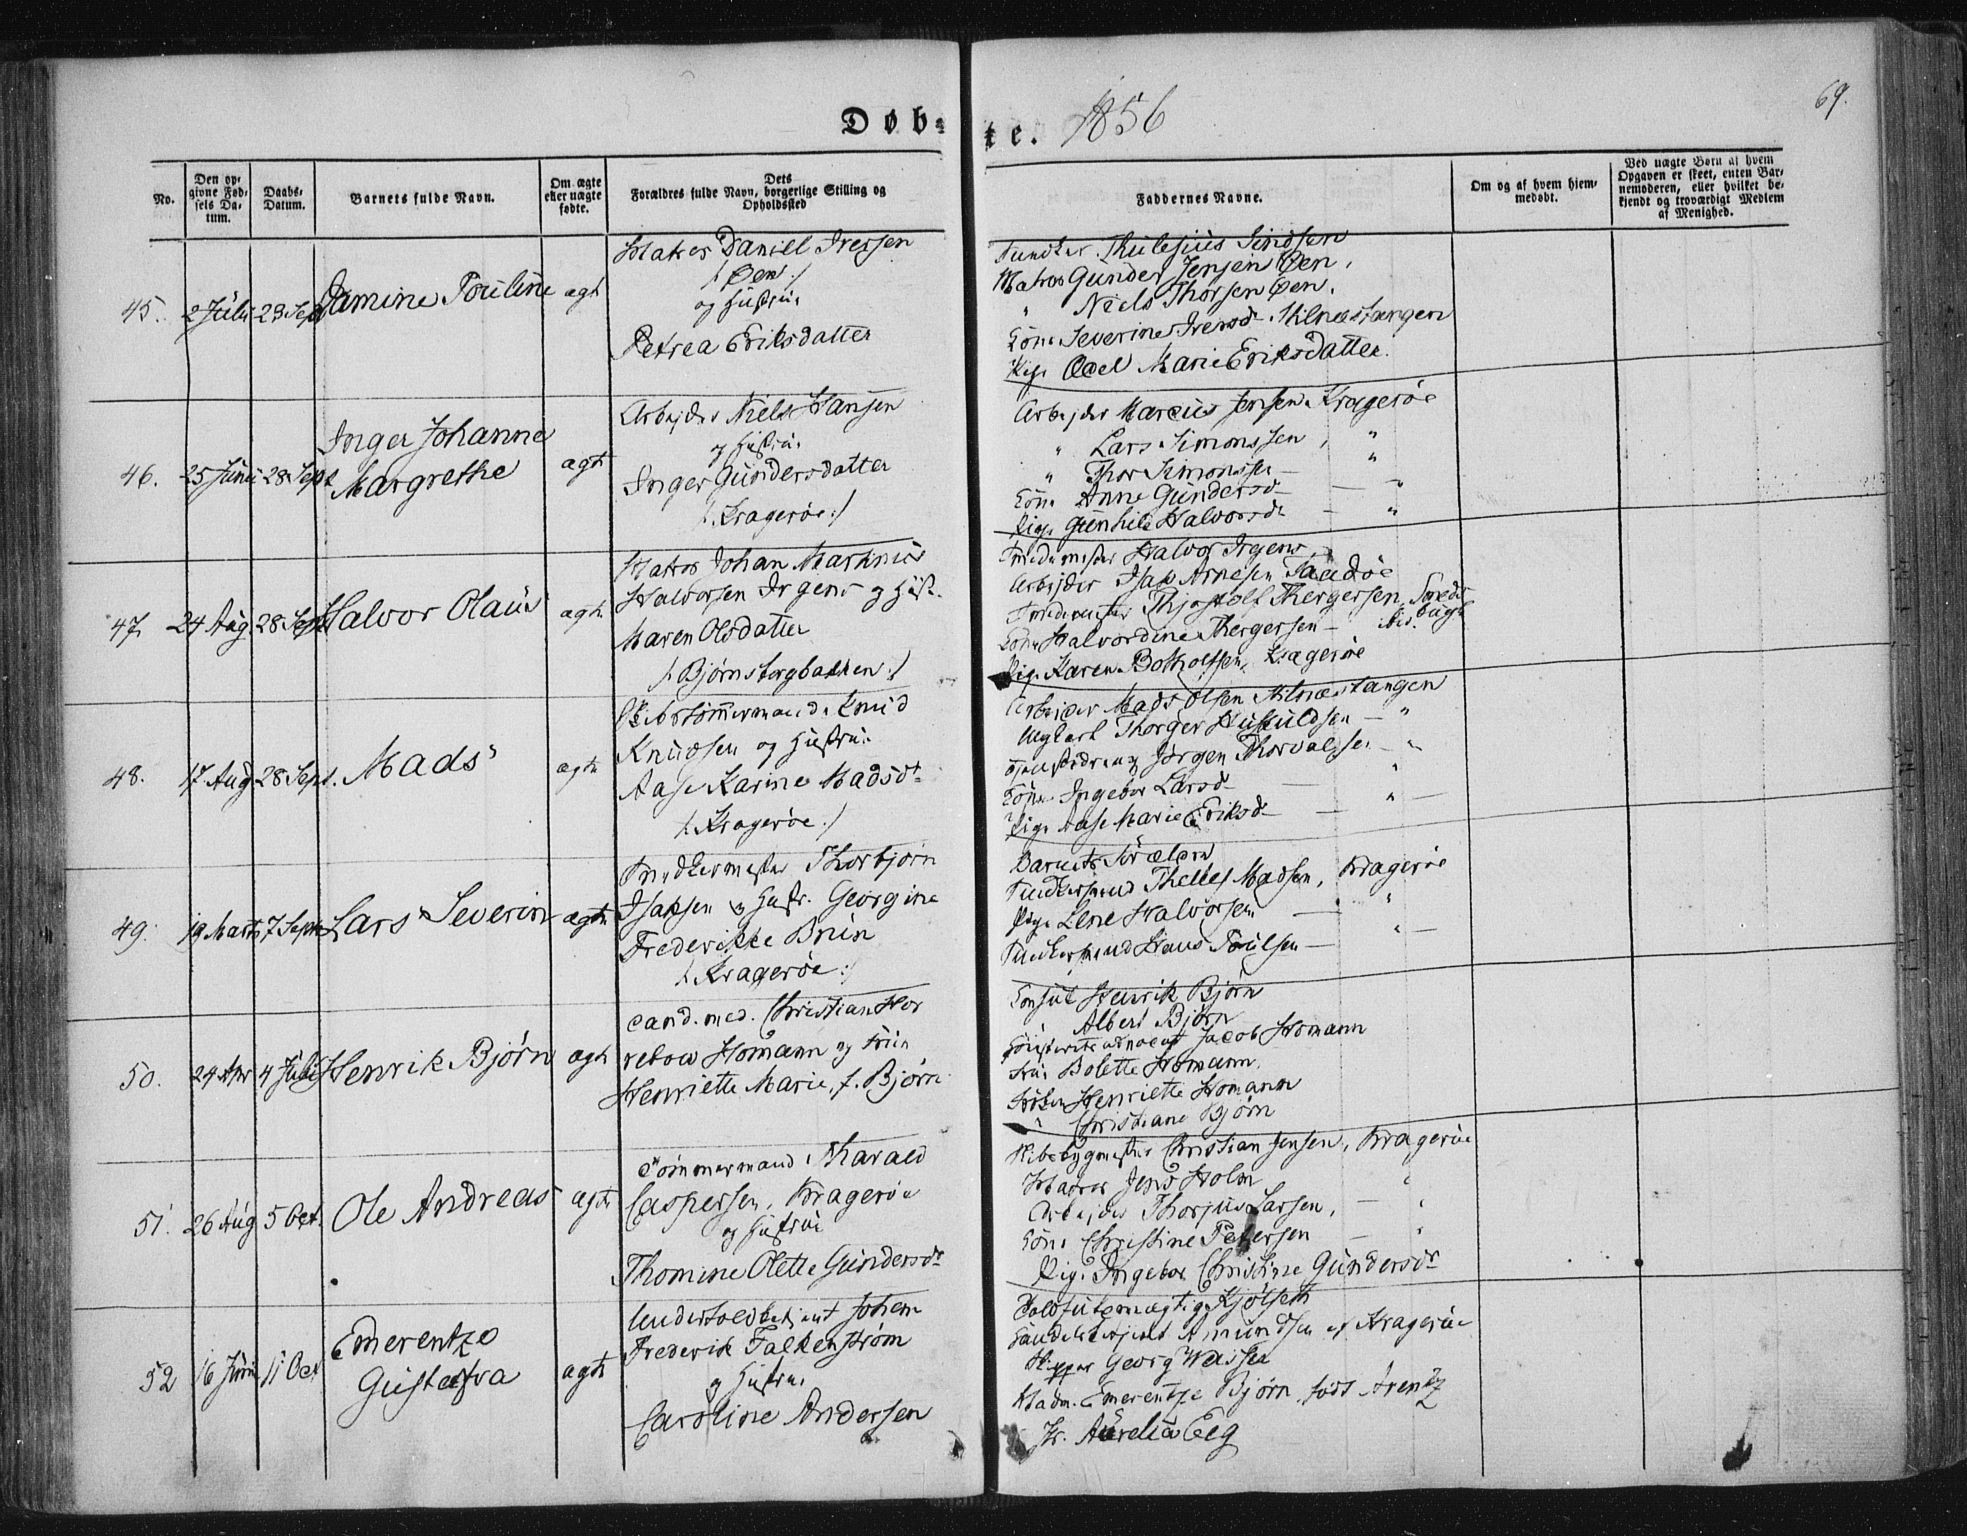 Døb-
te. 1856
69.
No.
Den op-
givne Fød-
sels Da-
tum.
Daabs-
Datum.
Barnets fulde Navn.
Om ægte
eller uægte
fødte.
Dets
Forældres fulde Navn, borgerlige Stilling og
Opholdssted
Faddernes Navne.
Om og af hvem hjem-
medøbt.
Ved uægte Børn af hvem
Opgaven er skeet, enten Bar-
nemoderen, eller hvilket be-
kjendt og troværdigt Medlem
af Menighed.
45. 2 Juli 28 Sept Jamine Pouline ægt
Matros Daniel Iversen
/: Øen :/
og Hustru
Petrea Eriksdatter
Thulesius Sindsen
Matros Gunder Jensen Øen,
" Niels Thorsen Øen,
Kone Severine Iversd
Pige Marie Eriksdatter.
46. 25 Juni 28 Sept Inger Johanne
Margrethe ægt
Arbejder Niels Hansen
og Hustru
Inger Gundersdatter
/: Kragerøe :/
Arbejder Marcus Jensen Kragerøe
" Lars Simonssen, "
" Thor Simonssen — "
Kone Anne Gundersd — "
Pige Gunhild Halvorsd — "
47. 24 Aug. 28 Sept Halvor Olaus ægt
Matros Johan Martinus
Halvorsen Irgens og Hust.
Maren Olsdatter
/: Bjørnsbergbakken :/
Smedemester Halvor Irgens
Arbejder Isak Arnesen
Smedemester Thjostolf Thergersen
Kone Halvordine Thergersen —
Pige Karen Botholfsen, Kragerøe
48. 17 Aug 28 Sept. Mads ægt
Skibstømmermand Knud
Knudsen og Hustru
Aase Karine Madsdt
/: Kragerøe :/
Arbejder Mads Olsen
Ungkarl Thorger — "
Jørgen Thorvaldsen — "
Kone Ingebor Larsd — "
Pige Aase Marie Eriksd — " —
49. 19 Marts 7 Sept Lars Severin ægte
Snedkermester Thorbjørn
Isaksen og Hustr. Georgine
Frederikke Brun
/: Kragerøe :/
Barnets Forældre
Snedkersvend Thelles Madsen, Kragerøe
Pige Lene Halvorsen — "
Snedkersvend Hans Poulsen — " —
50. 24 Apr 4 Juli Henrik Bjørn ægt
cand. med. Christian Hor
rebow Homann og Frue
Henriette Marie, f. Bjørn
Konsul Henrik Bjørn
Albert Bjørn
Jacob Homann
Frue Bolette Homann
Frøken Henriette Homann
" Christiane Bjørn
51. 26 Aug 5 Oct. Ole Andreas ægte
Tømmermand Harald
Caspersen, Kragerøe
og Hustrue
Thomine Olette Gundersdt
Skibsbygmester Christian Jensen, Kragerøe
Matros Jens Holm "
Arbejder Thorjus Larsen, — "
Kone Christine Petersen — "
Pige Ingebor Christine Gundersdr
52 16 Juni 11 Oct Emerentze
Gustafva ægte
Undertoldbetjent Johan
Frederik Falkenstrøm
og Hustru
Caroline Andersen
Toldfuldmægtig Kjølseth
Amundsen af Kragerøe
Skipper Georg
Madm. Emerentze Bjørn, født Arentz
Fr. Aurelia Eeg